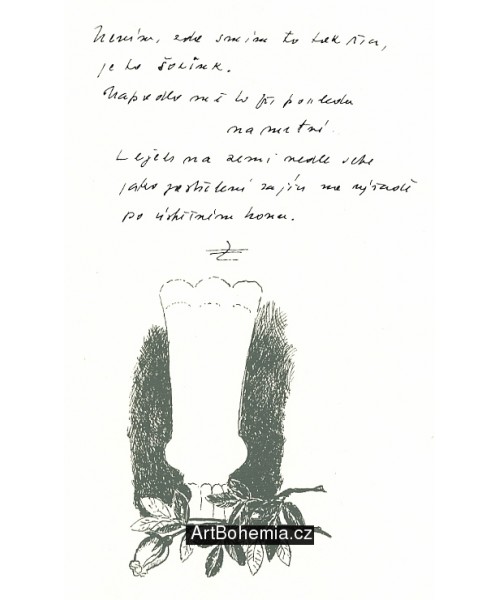 Nevím, zda smím to tak říci,
je to šotínk.
Napadlo mě to při pohledu
na
Ležely na zemi vedle sebe
jako postřelení zajíci na výřadě
po úspěšném honu.
ArtBohemia.cz